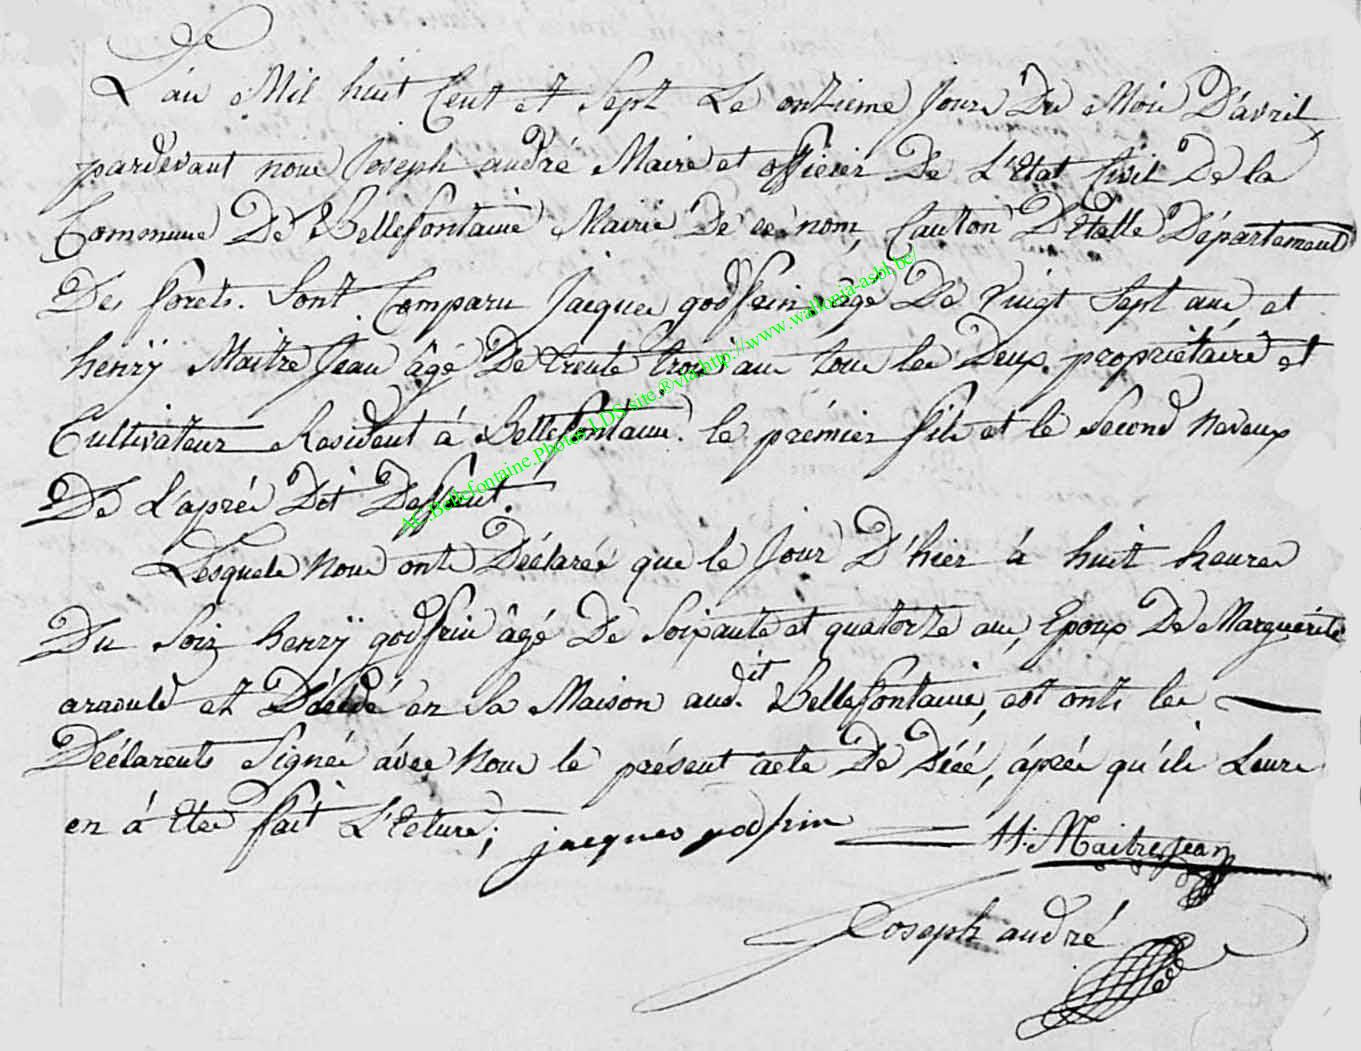 L'an Mil huit Cent et Sept Le onzieme Jour Du Mois D'avril
pardevant nous Joseph andré Maire et officier De L'Etat Civil De la
Commune De Bellefontaine Mairie De ce nom, Canton D'Etalle Département
Des forets. Sont Comparu Jacques godfrin, âgé De Vingt Sept ans, et
henrÿ Maitre Jean âgé De trente trois ans tous les Deux propriétaire et
Cultivateur Resident á Bellefontaine. le prémier fils et le Second Neveux
De L'aprés Dit Deffunt.
Lesquels Nous onts Déclarés que le Jour D'hier à huit heures
Du Soir henrÿ godfrin âgé De Soixante et quatorze ans, Epoux De Marguérite
arnould et Décédé en Sa Maison aud.it Bellefontaine, est onts les
Déclarents Signés ávec Nous le présent acte De Décé, áprés qu'ils Leurs
en á Etés fait L'Ecture;
jacques godfrin H: MaitreJean
Joseph andré
AE.Bellefontaine.Photos LDS site.®via http://www.wallonia-asbl.be/